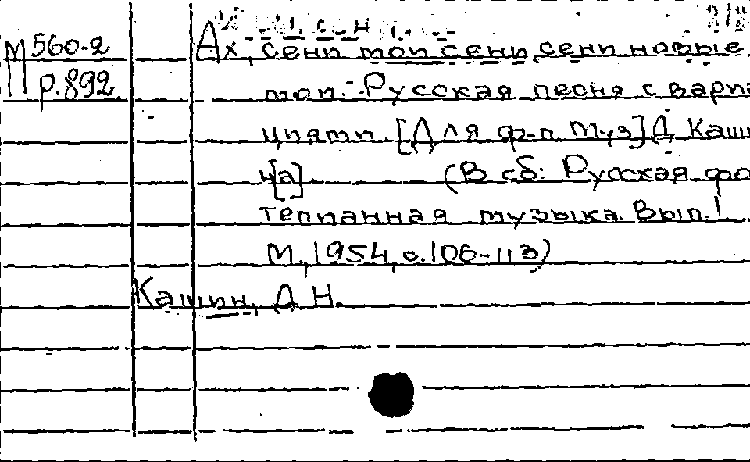 М 560-2
р.892
Ах, сени мои сени, сени новые
мои. Русская песня с вариа
циями. [Для ф-п. Муз] Д Каши
н[а]. (В сб: Русская фо
тепианная музыка. Вып. 1
М, 1954, с. 106-113)
Кашин, Д Н.